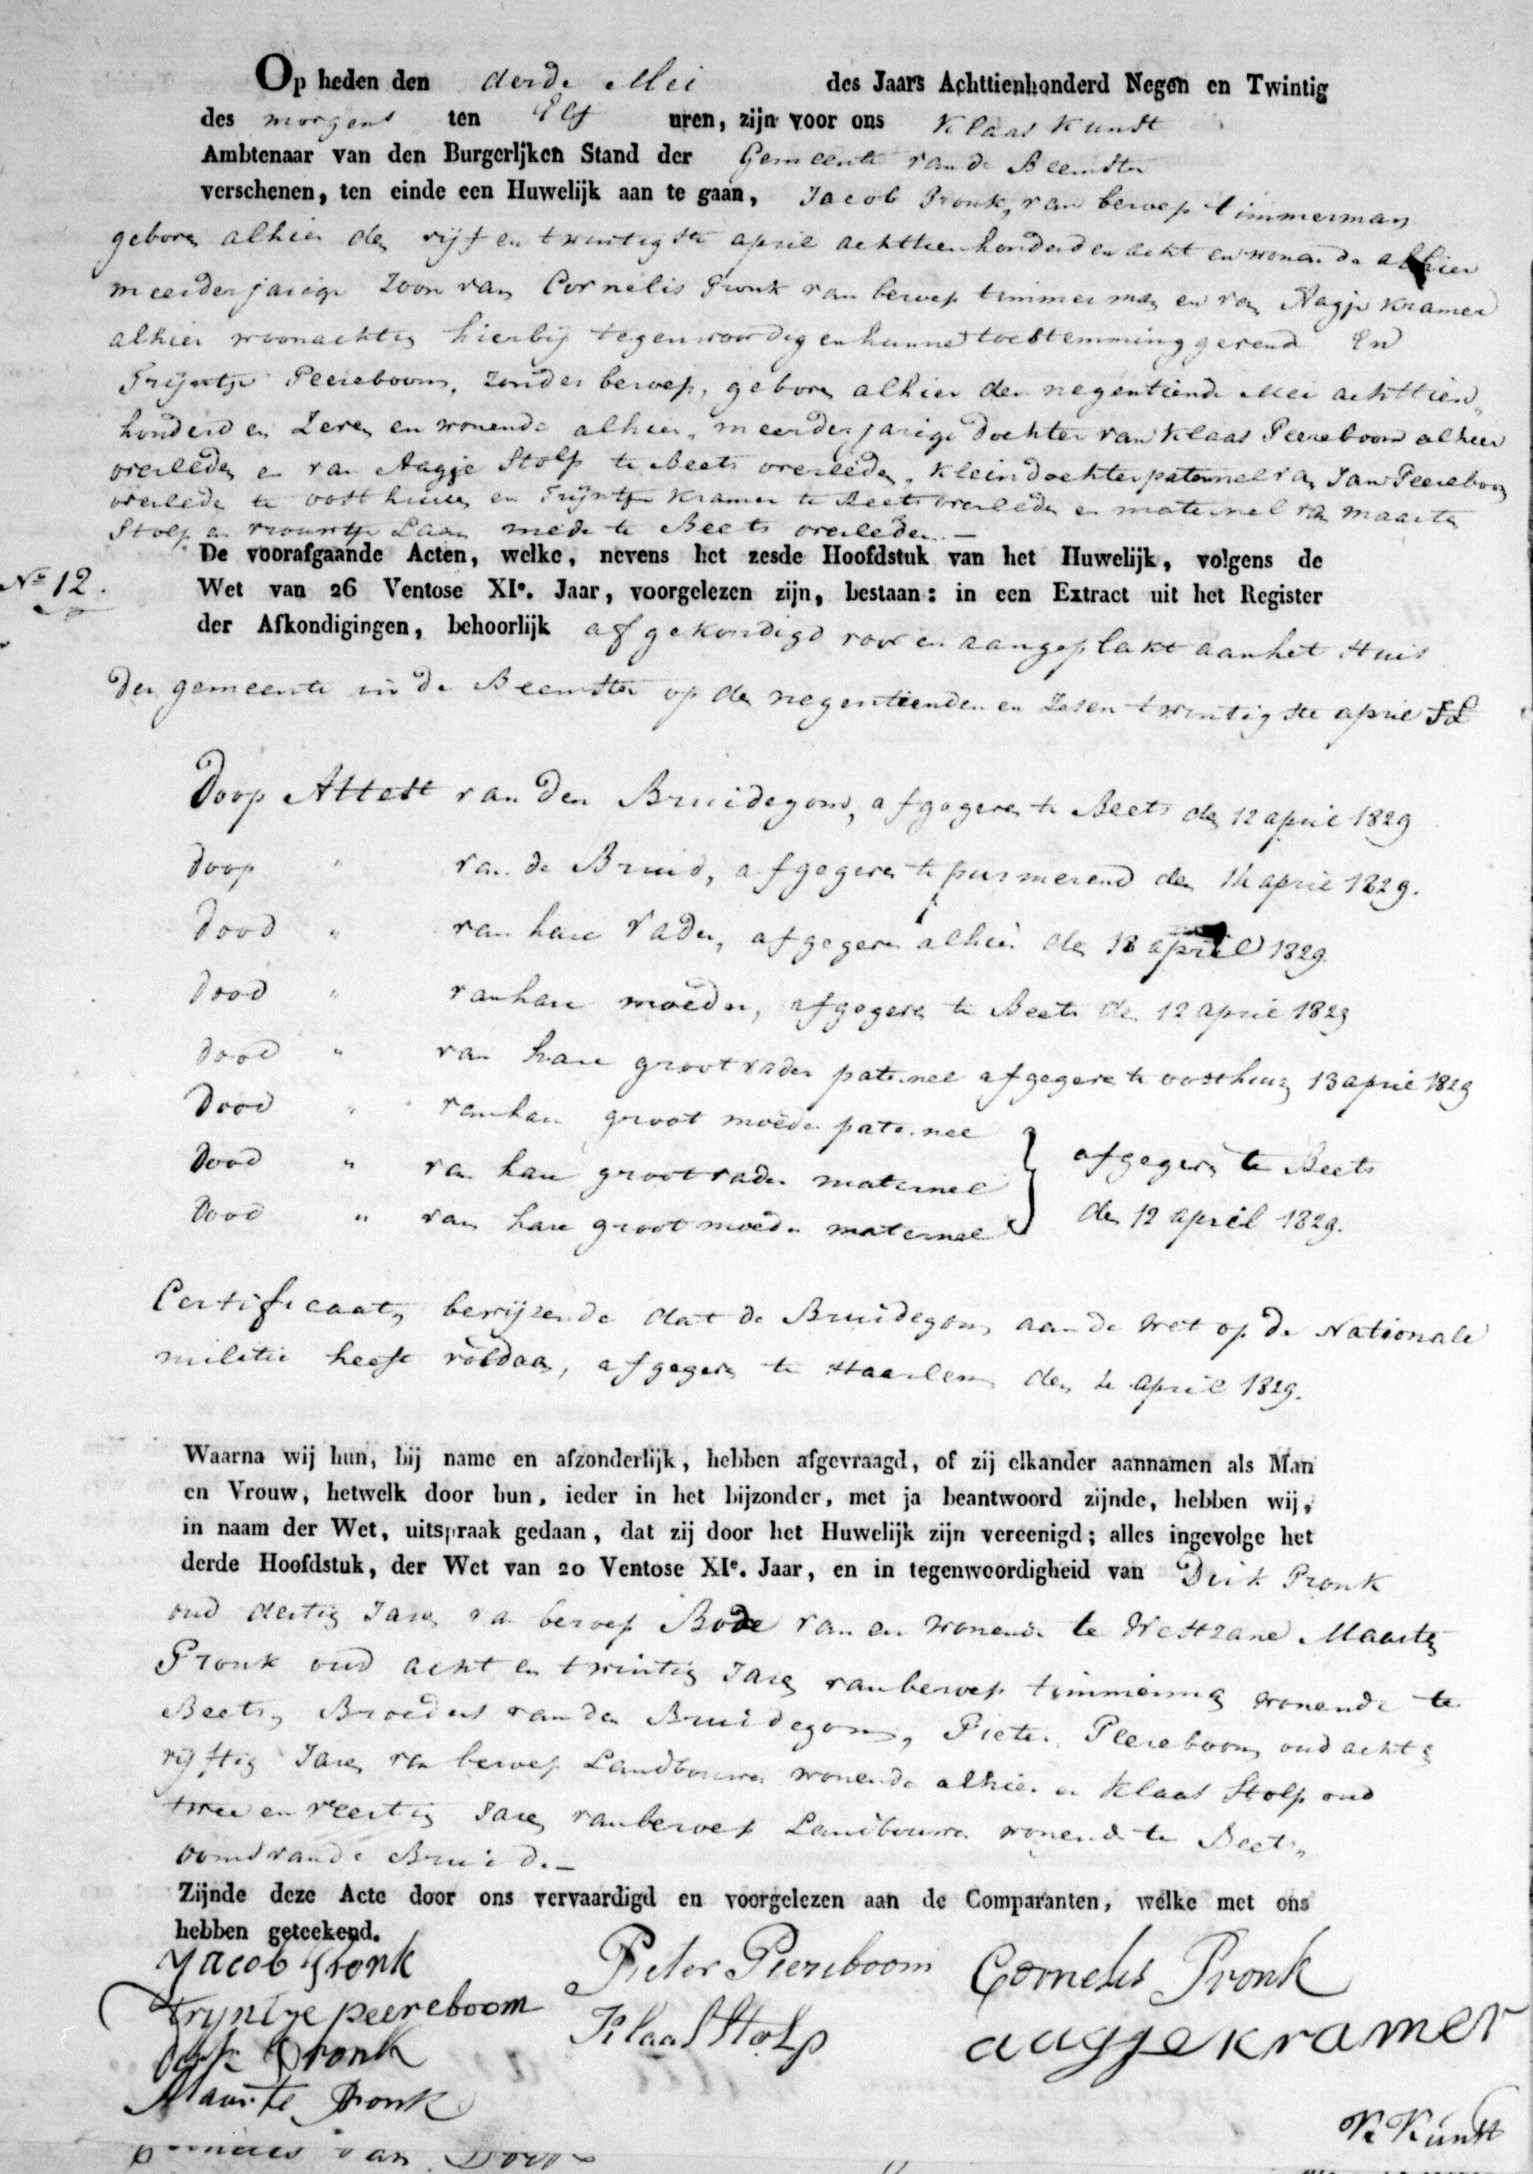 Op heden den derde Mei des Jaars Achttienhonderd Negen en Twintig
des morgens ten Elf uren, zijn voor ons Klaas Kunst
Ambtenaar van den Burgerljken Stand der Gemeente van de Beemster
verschenen, ten einde een Huwelijk aan te gaan, Jacob Pronk, van beroep timmerman
geboren alhier den vijf en twintigste april achttienhonderd en acht en wonende alhier
meerderjarige Zoon van Cornelis Pronk van beroep timmerman en van Aagje Kramer
alhier woonachtig hierbij tegenwoordig en hunne toestemming gevende En
Trijntje Peereboom, zonder beroep, geboren alhier den negentiende Mei achttien„
honderd en Zeven en wonende alhier, meerderjarige dochter van Klaas Peereboom alhier
overleden en van Aagje Stolp te Beets overleden, kleindochter paternel van Jan Peereboom
overleden te oosthuizen en Trijntje Kramer te Beets overleden en maternel van Maarten
Stolp en Vrouwtje Laan mede te Beets overleden.—
De voorafgaande Acten, welke, nevens het zesde Hoofdstuk van het Huwelijk, volgens de
No 12. Wet van 26 Ventose XIe. Jaar, voorgelezen zijn, bestaan: in een Extract uit het Register
der Afkondigingen, behoorlijk afgekondigd voor en aangeplakt aan het Huis
der gemeente in de Beemster op den negentienden en Zesen twintigste april JL
Doop Attest van den Bruidegom, afgegeven te Beets den 12 april 1829
Doop " van de Bruid, afgegeven te purmerend den 14 april 1829.
Dood " van hare Vader, afgegeven alhier den 18 april 1829
Dood " van hare moeder, afgegeven te Beets den 12 april 1829
dood " van hare grootvader paternel afgegeven te oosthuizen 13 april 1829
Dood " van hare groot moeder paternel
Dood " van hare grootvader maternel } afgegeven te Beets
Dood " van hare grootmoeder maternel den 12 april 1829.
Certificaat, bewijzende dat de Bruidegom aan de Wet op de Nationale
militie heeft voldaan, afgegeven te Haarlem den 4 April 1829.
Waarna wij hun, bij name en afzonderlijk, hebben afgevraagd, of zij elkander aannamen als Man
en Vrouw, hetwelk door hun, ieder in het bijzonder, met ja beantwoord zijnde, hebben wij,
in naam der Wet, uitspraak gedaan, dat zij door het Huwelijk zijn vereenigd; alles ingevolge het
derde Hoofdstuk, der Wet van 20 Ventose XIe. Jaar, en in tegenwoordigheid van Dirk Pronk
oud dertig Jaren van beroep Bode van en wonende te Westzane Maarten
Pronk oud acht en twintig Jaren van beroep timmerman wonende te
Beets, Broeders van den Bruidegom, Pieter Peereboom oud acht en
vijftig Jaren van beroep Landbouwer wonende alhier en Klaas Stolp oud
twee en veertig Jaren van beroep Landbouwer wonende te Beets,
ooms van de Bruid.—
Zijnde deze Acte door ons vervaardigd en voorgelezen aan de Comparanten, welke met ons
hebben geteekend.
Jacob Pronk Pieter Peereboom Cornelis Pronk
Tryntje peereboom Klaas Stolp aagje kramer
Dirk Pronk
Maarte Pronk
K Kunst
van